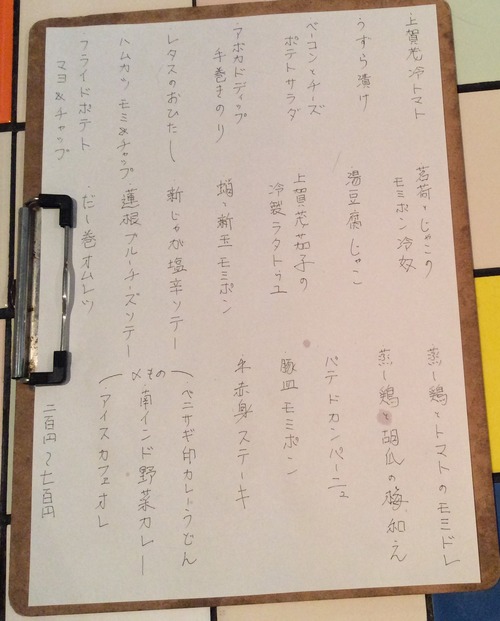 ・上賀茂冷トマト
・うずら漬け
・ベーコンとチーズ
ポテトサラダ
・アボカドディップ
手巻きのり
・レタスのおひたし
・ハムカツ モミ&チャップ
・フライドポテト
マヨ&チャップ
・茗荷とじゃこの
モミポン冷奴
・湯豆腐じゃこ
・上賀茂茄子の
冷製ラタトゥユ
・蛸と新玉モミポン
・新じゃが塩辛ソテー
・蓮根ブルーチーズソテー
・だし巻オムレツ
・蒸し鶏とトマトのモミドレ
・蒸し鶏と胡瓜の梅和え
・パテドカンパーニュ
・豚皿モミポン
・牛赤身ステーキ
〆もの
・ベニサギ印カレーうどん
・南インド野菜カレー
・アイスカフェオレ
二百円〜七百円